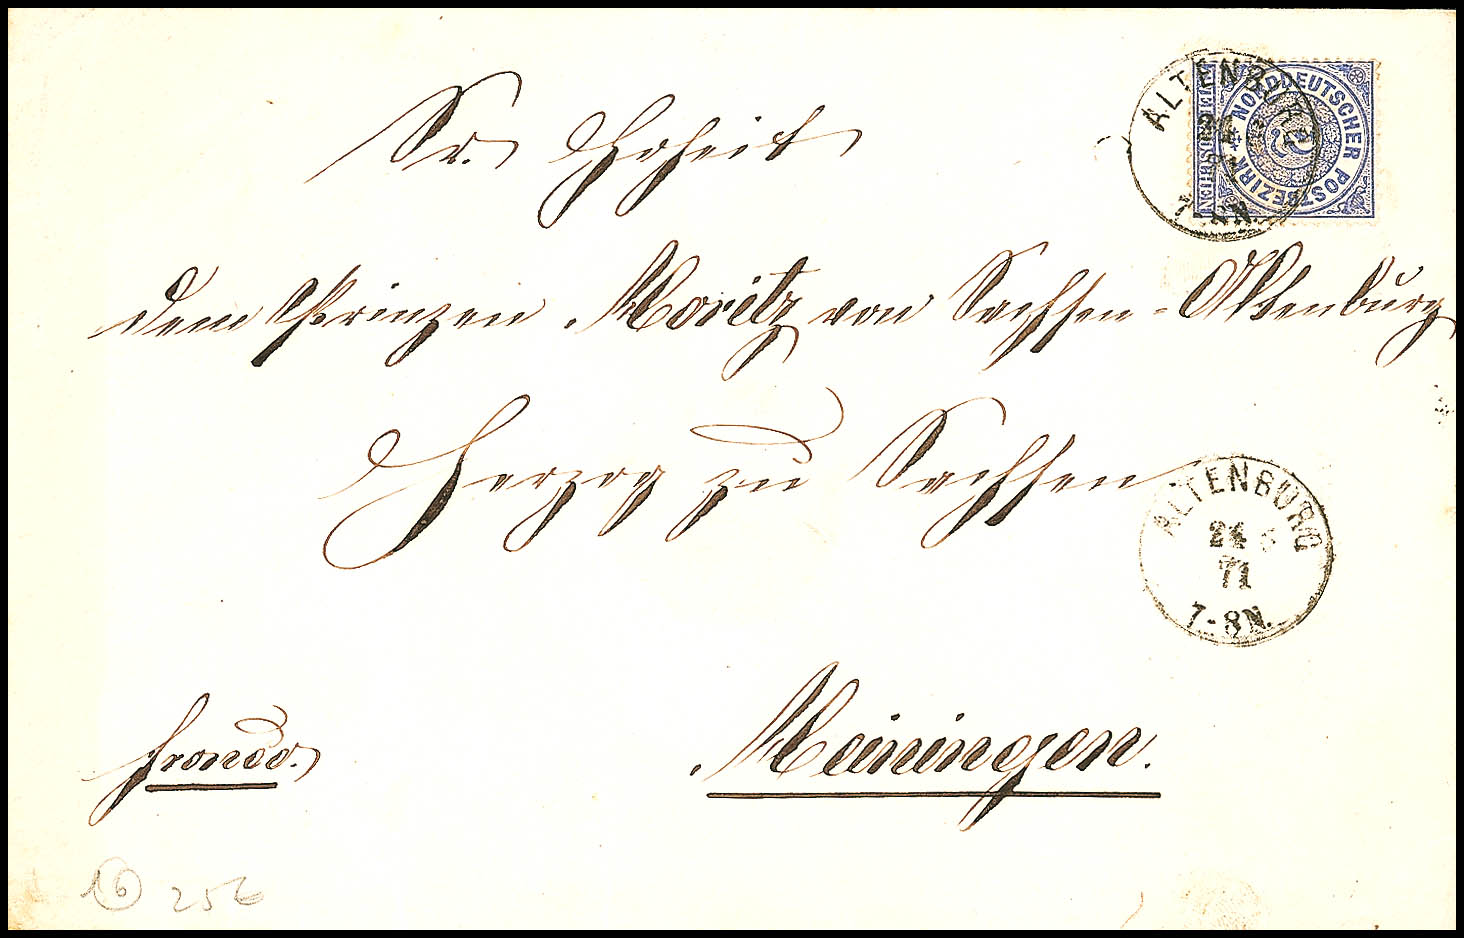 Sr. Hoheit
dem Prinzen Moritz von Sachsen-Altenburg
Herzog zu Sachsen
Meiningen.
franco.
NORDDEUTSCHER POSTBEZIRK
2
ALTENBURG
ALTENBURG
24 5
71
7-8N.
16 25€